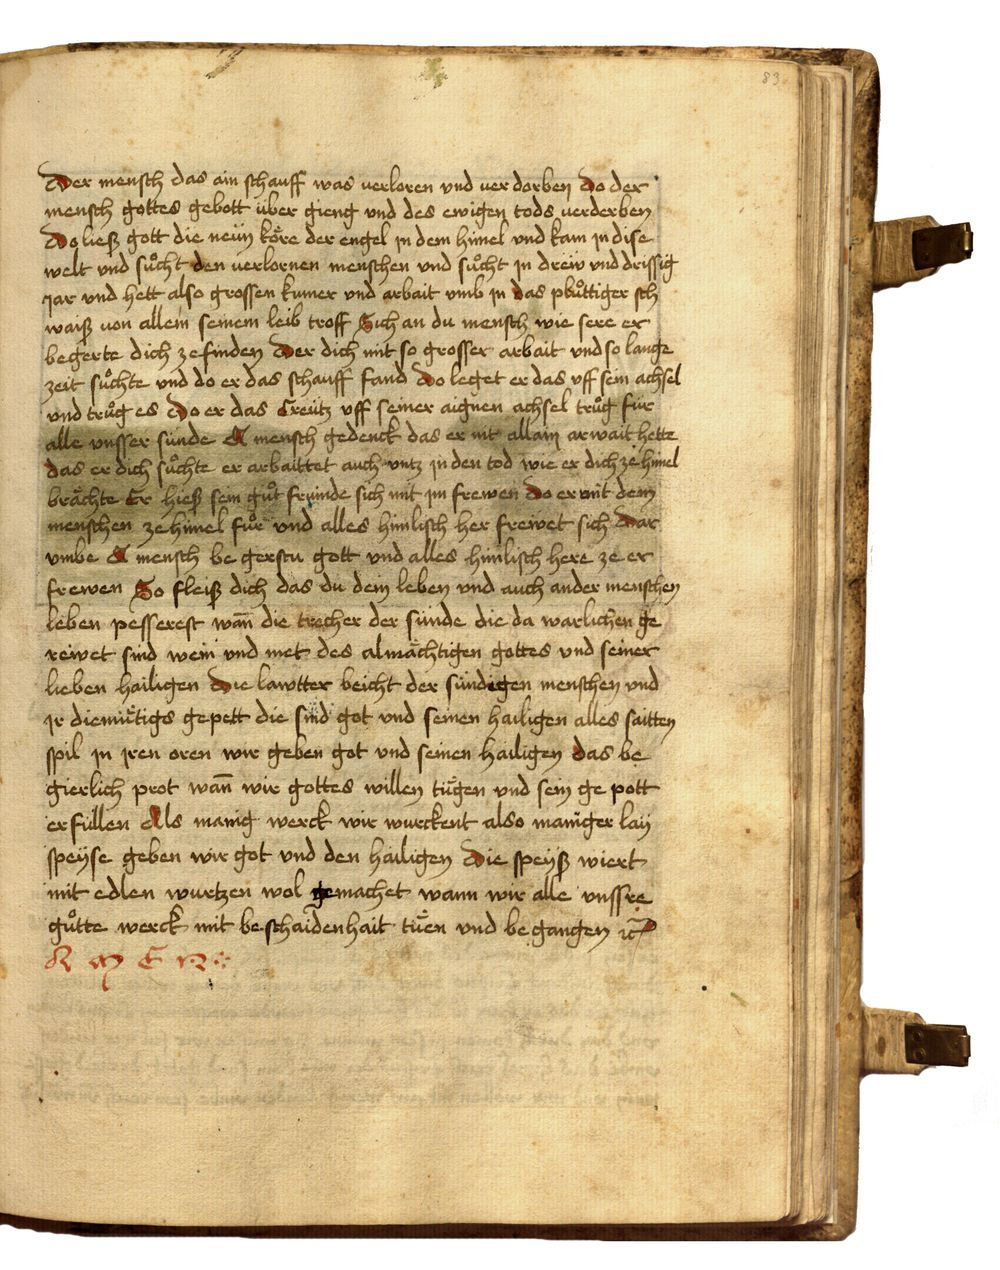 83
Der mensch das ain schauff was verloren vnd verdorben Do der
mensch gottes gebott über gieng vnd des ewigen tods verderben
Do ließ gott die neün kőre der engel jn dem himel vnd kam jn dise
welt vnd sůcht den verlornen menschen vnd sůcht jn drëw vnd drissig
jar vnd hett also grossen kumer vnd arbait vmb jn das plůttiger sch
waiß von allem seinem leib troff Sich an du mensch wie sere er
begerte dich ze finden Der dich mit so grosser arbait vnd so lange
zeit sůchte vnd do er das schauff fand Do leget er das vff sein achsel
vnd trůg es Do er das Creütz vff seiner aignen achsel trůg für
alle vnsser sünde O mensch gedenck das er nit allain arwait hette
das er dich sůchte er arbaittet auch vntz jn den tod wie er dich ze himel
brächte Er hieß sein gůt fründe sich mit jm frewen Do er mit dem
menschen ze himel fůr vnd alles himlisch her frewet sich Dar
vmbe O mensch be gerstu gott vnd alles himlisch here ze er
frewen So fleiß dich das du dein leben vnd auch ander menschen
leben pesserest wañ die trecher der sünde die da warlichen ge
rewet sind wein vnd met des almächtigen gottes vnd seiner
lieben hailigen Die lawtter beicht der sündigen menschen vnd
jr diemütigs gepett die sind got vnd seinen hailigen alles saitten
spil in jren oren wir geben got vnd seinen hailigen das be
gierlich prot wañ wir gottes willen tůgen vnd sein ge pott
erfüllen Als manig werck wir wurckent also maniger lay
speyse geben wir got vnd den hailigen Die speyß wiert
mit edlen wurtzen wol gemachet wann wir alle vnssre
gůtte werck mit beschaidenhait tüen vnd be gangen